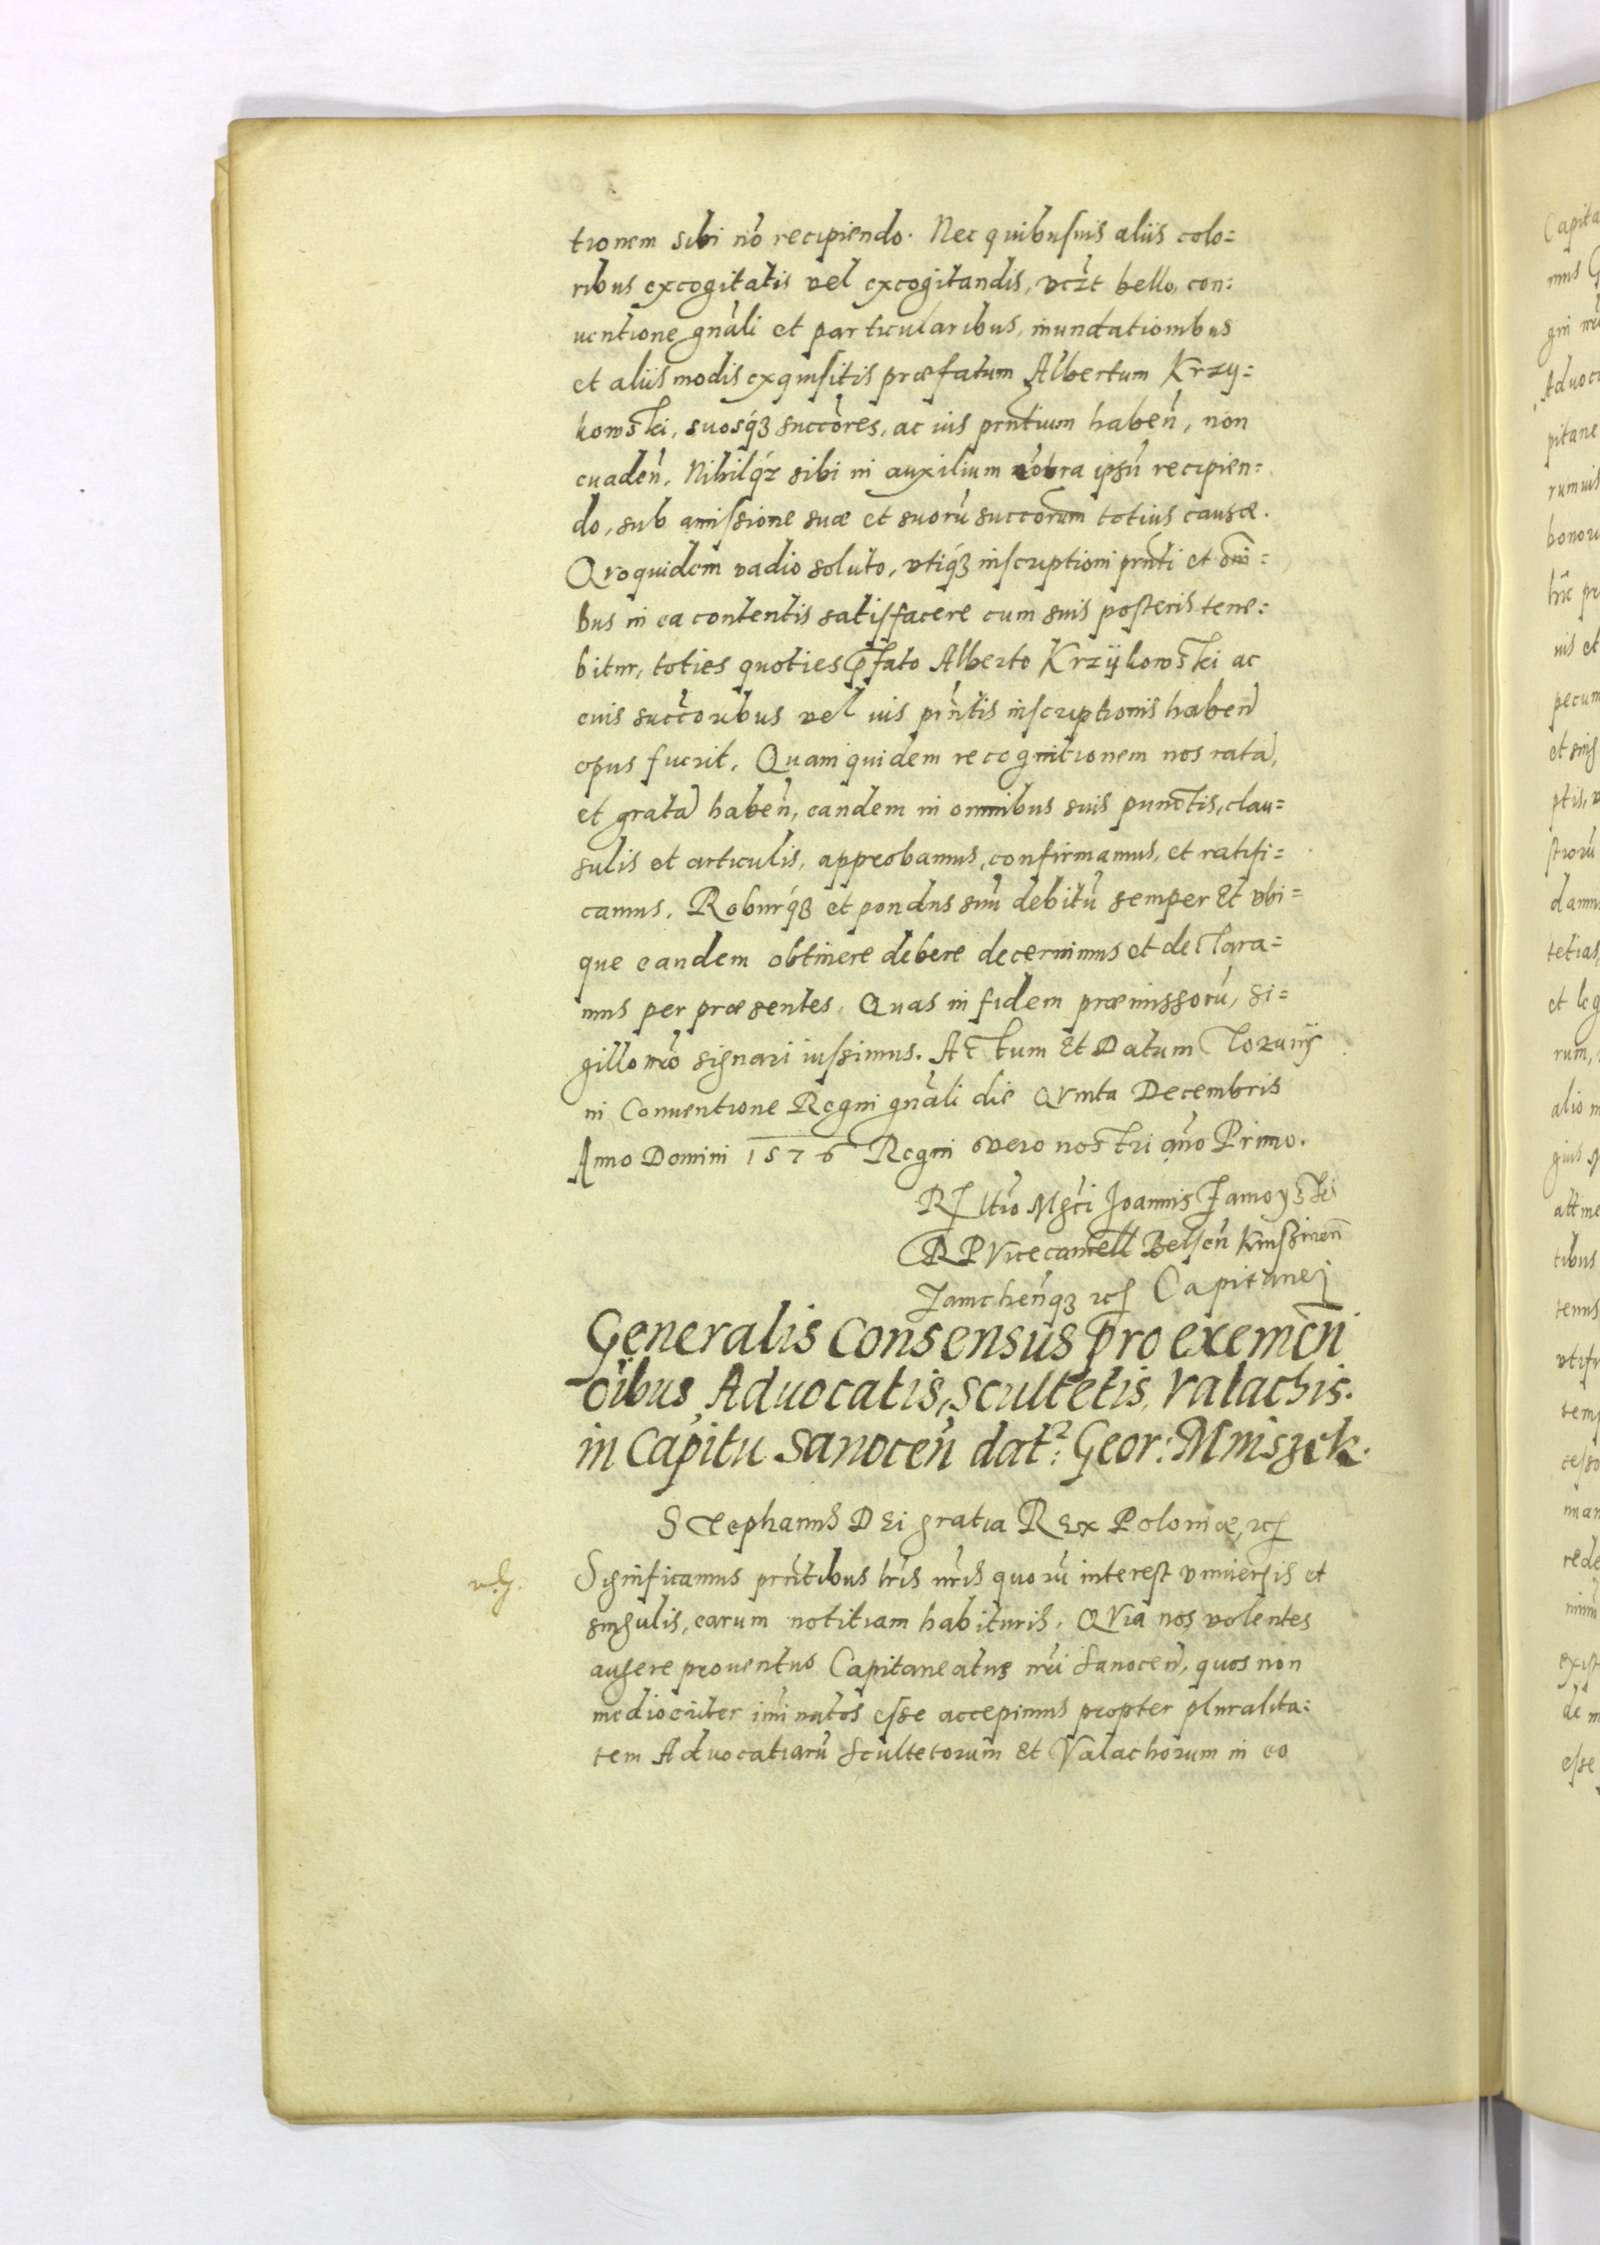 tionem sibi nō recipiendo. Nec quibusuis aliis colo=
ribus excogitatis vel excogitandis, vczt bello, con=
uentione gnāli et particularibus, inundationibus
et aliis modis exquisitis præfatum Albertum Krzy=
kowski, suosq́ȝ succōres, ac ius prntium haben̄, non
euaden̄. Nihilq́ȝ sibi in auxilium ipsū recipien=
do, sub amissione suæ et suorū succorum totius causæ.
Quoquidem vadio soluto, vtiq́ȝ inscriptioni prn̄ti et om̄i=
bus in ea contentis satisfacere cum suis posteris tene=
bitur, toties quoties p̄fato Alberto Krzÿkowski ac
euis succ̄oribus vel ius prn̄tis inscriptionis haben̄
opus fuerit. Quamquidem recognitionem nos ratā,
et gratā haben̄, eandem in omnibus suis punctis, clau=
sulis et articulis, approbamus, confirmamus, et ratifi=
camus. Roburq́ȝ et pondus suū debitū semper Et vbi=
que eandem obtinere debere decernimus et declara=
mus per præsentes. Quas in fidem præmissorū, si=
gillo nr̄o signari iussimus. Actum Et Datum Torunÿ
in Conuentione Regni gnāli die Qvinta Decembris
Anno Domini 1576 Regni vero nostri an̄o Primo.
Rł ltio Mgc̄i Joannis Zamoyski
R P Vicecancell Belsen̄ Knissinen̄
Zamchen̄qȝ etc Capitanei
Generalis Consensus pro exemen̄
oībus Aduocatis, scultetis, Valachis.
in Capitu Sanocen̄ dat: Geor: Mniszek.
Stephanus DEi gratia REx Poloniæ, etc
v. g.
Significamus prn̄tibus lr̄is nr̄is quorū interest vniuersis et
singulis, earum notitiam habituris. QVia nos volentes
augere prouentus Capitaneatus nr̄i Sanocen̄, quos non
mediocriter im̄inutos esse accepimus propter pluralita=
tem Aduocatiarū Scultetorum Et Valachorum in eo